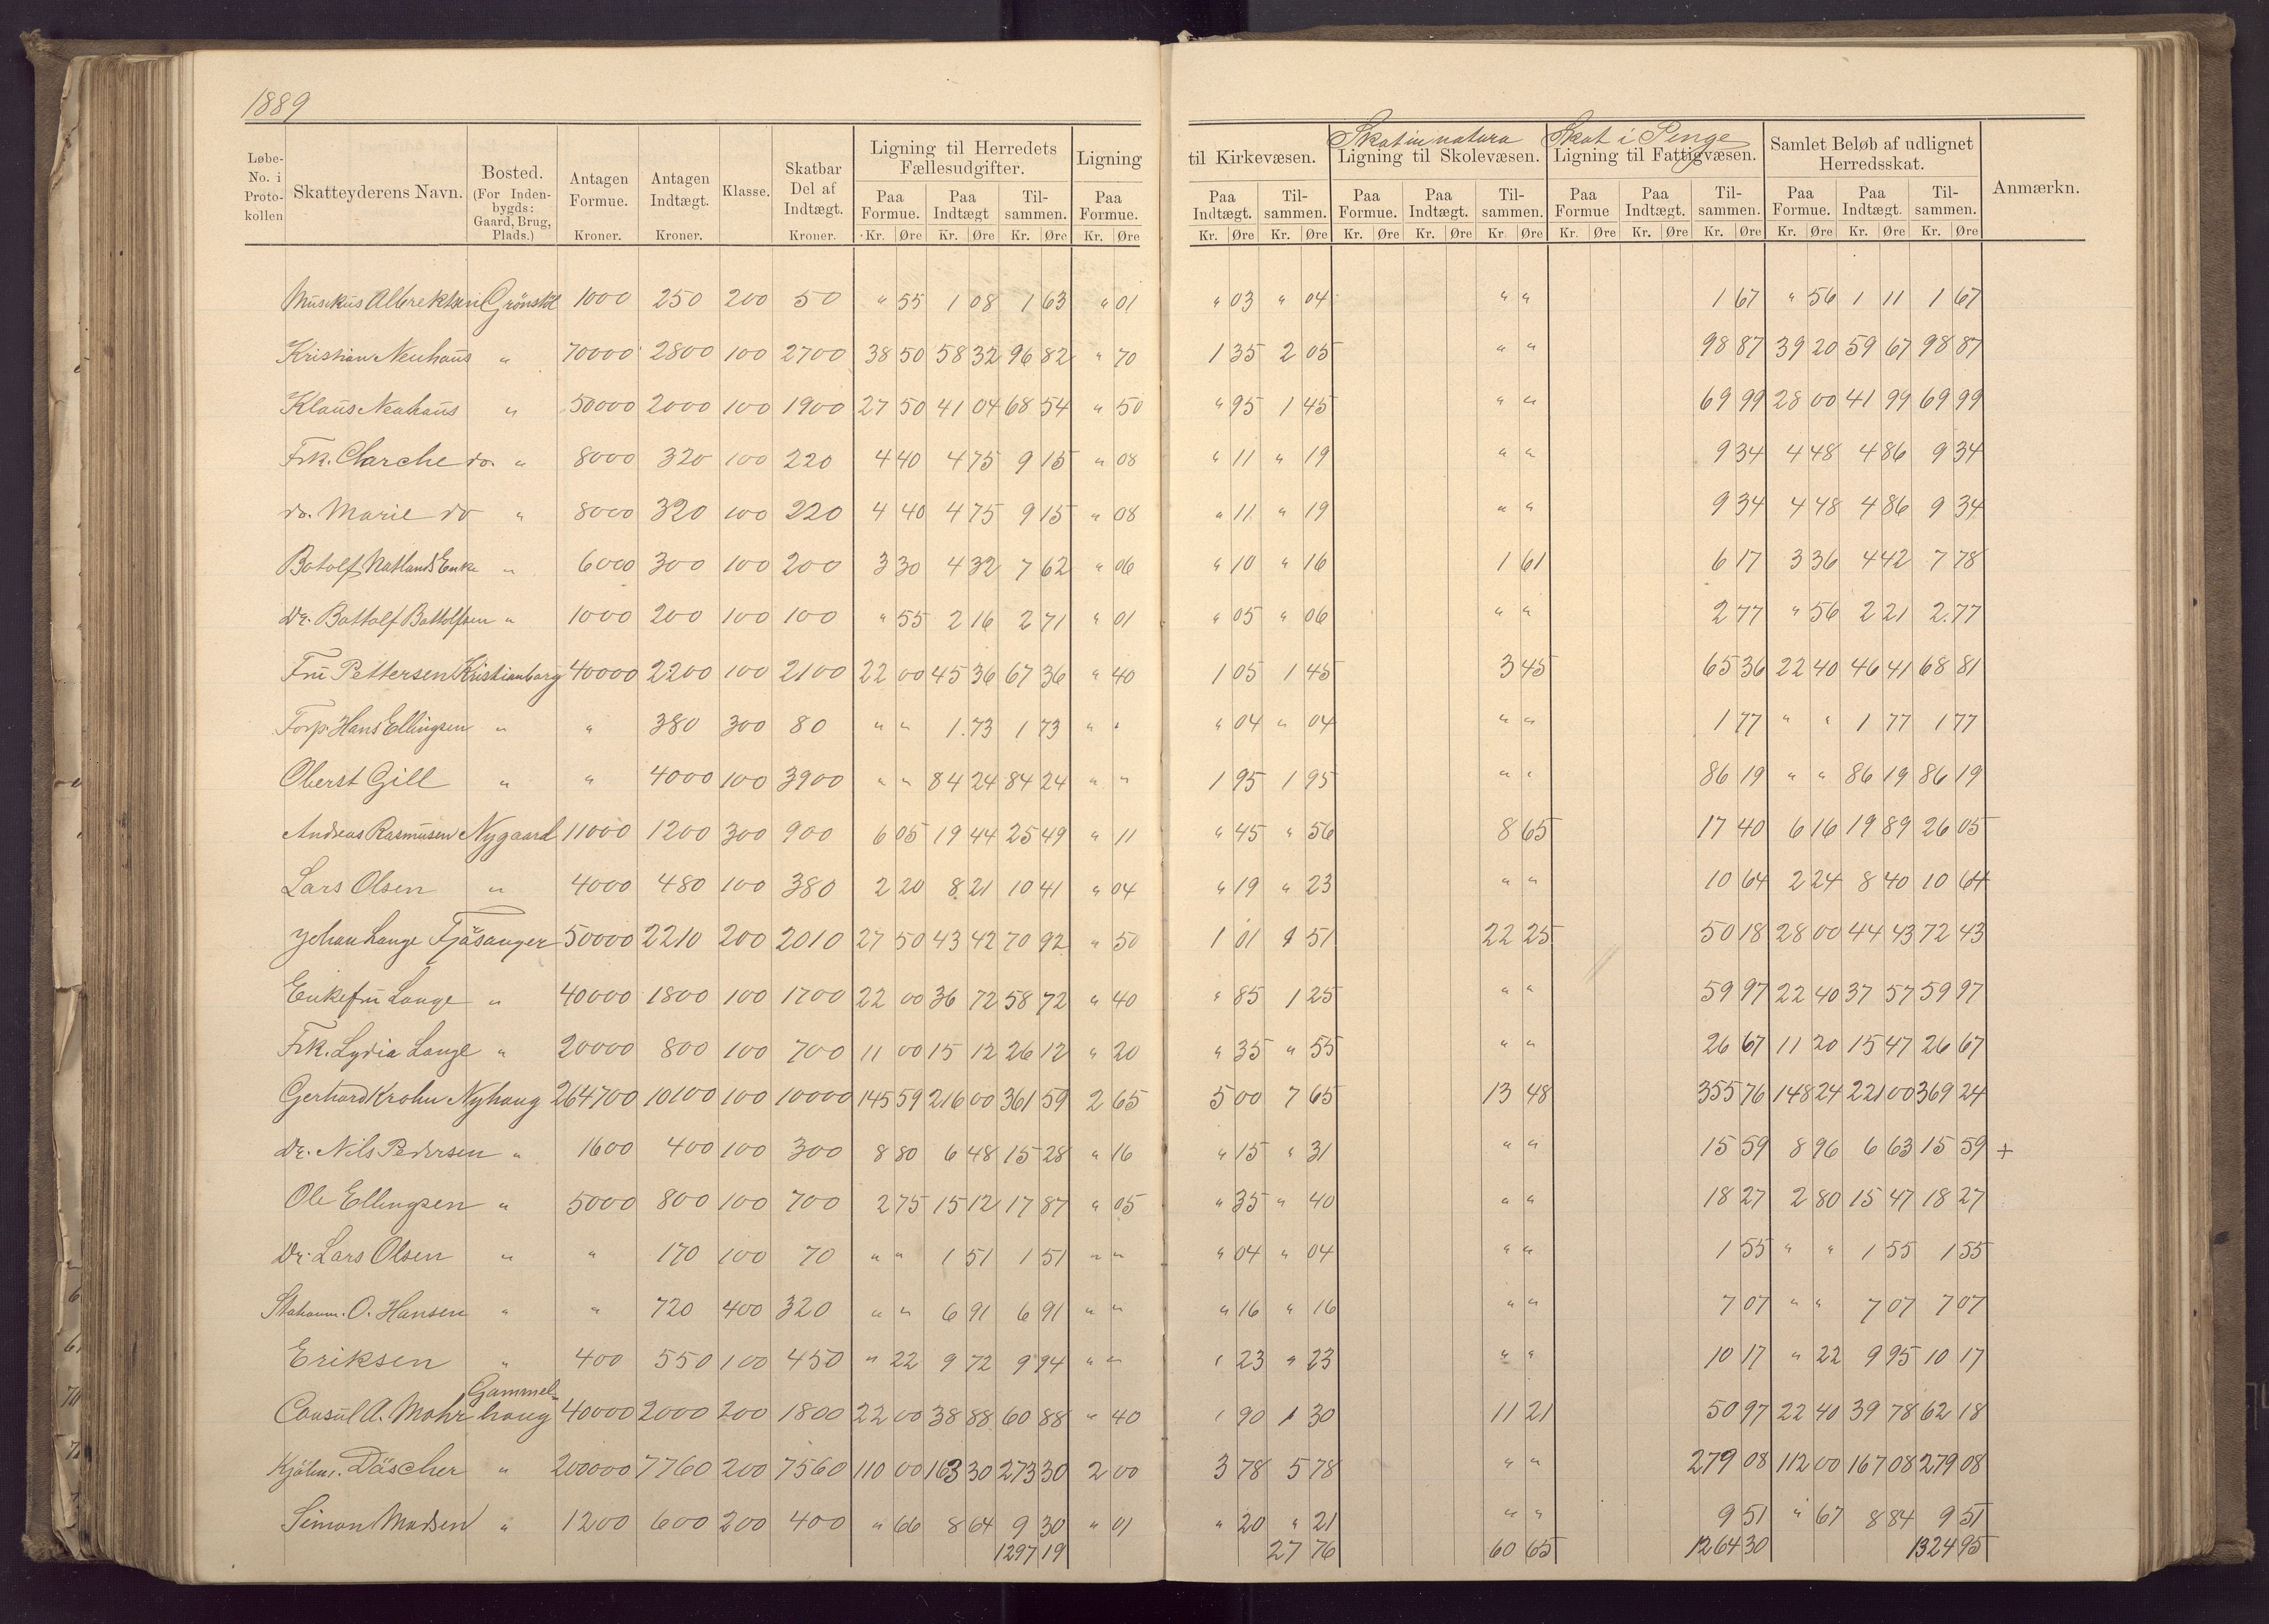 1889
Løbe-No. i Proto-kollen | Skatteyderens Navn. | Bosted. (For Inden-bygds: Gaard, Brug, Plads.) | Antagen Formue. Kroner. | Antagen Indtægt. Kroner. | Klasse. | Skatbar Del af Indtægt. Kroner. | Ligning til Herredets Fællesudgifter. Paa Formue. Kr. Øre | Paa Indtægt Kr. Øre | Til-sammen. Kr. Øre | Ligning Paa Formue. Kr. Øre | til Kirkevæsen. Paa Indtægt. Kr. Øre | Til-sammen. Kr. Øre | Skat in natura Ligning til Skolevæsen. Paa Formue. Kr. Øre | Paa Indtægt. Kr. Øre | Til-sammen. Kr. Øre | Skat i Penge Ligning til Fattigvæsen. Paa Formue Kr. Øre | Paa Indtægt. Kr. Øre | Til-sammen. Kr. Øre | Samlet Beløb af udlignet Herredsskat. Paa Formue. Kr. Øre | Paa Indtægt. Kr. Øre | Til-sammen. Kr. Øre | Anmærkn.
Musikus Albrektsen Grønstöl 1000 250 200 50 " 55 1 08 1 63 " 01 " 03 " 04 " " 1 67 " 56 1 11 1 67
Kristian Neuhaus " 70000 2800 100 2700 38 50 58 32 96 82 " 70 1 35 2 05 " " 98 87 39 20 59 67 98 87
Klaus Neuhaus " 50000 2000 100 1900 27 50 41 04 68 54 " 50 " 95 1 45 " " 69 99 28 00 41 99 69 99
Frk. Charche do. " 8000 320 100 220 4 40 4 75 9 15 " 08 " 11 " 19 " " 9 34 4 48 4 86 9 34
do. Marie do " 8000 320 100 220 4 40 4 75 9 15 " 08 " 11 " 19 " " 9 34 4 48 4 86 9 34
Botolf Natlands Enke " 6000 300 100 200 3 30 4 32 7 62 " 06 " 10 " 16 1 61 6 17 3 36 4 42 7 78
Dr. Bottolf Bottolfsen " 1000 200 100 100 " 55 2 16 2 71 " 01 " 05 " 06 " " 2 77 " 56 2 21 2.77
Fru Pettersen Kristianborg 40000 2200 100 2100 22 00 45 36 67 36 " 40 1 05 1 45 3 45 65 36 22 40 46 41 68 81
Forp. Hans Ellingsen " " 380 300 80 " " 1.73 1 73 " " " 04 " 04 " " 1 77 " " 1 77 1 77
Oberst Gill " " 4000 100 3900 " " 84 24 84 24 " " 1 95 1 95 " " 86 19 " " 86 19 86 19
Andreas Rasmusen Nygaard 11000 1200 300 900 6 05 19 44 25 49 " 11 " 45 " 56 8 65 17 40 6 16 19 89 26 05
Lars Olsen " 4000 480 100 380 2 20 8 21 10 41 " 04 " 19 " 23 " " 10 64 2 24 8 40 10 64
Johan Lange Fjøsanger 50000 2210 200 2010 27 50 43 42 70 92 " 50 1 01 1 51 22 25 50 18 28 00 44 43 72 43
Enkefru Lange " 40000 1800 100 1700 22 00 36 72 58 72 " 40 " 85 1 25 " " 59 97 22 40 37 57 59 97
Frk. Lydia Lange " 20000 800 100 700 11 00 15 12 26 12 " 20 " 35 " 55 " " 26 67 11 20 15 47 26 67
Gerhard Krohn Nyhaug 264700 10100 100 10000 145 59 216 00 361 59 2 65 5 00 7 65 13 48 355 76 148 24 221 00 369 24
Dr. Nils Pedersen " 1600 400 100 300 8 80 6 48 15 28 " 16 " 15 " 31 " " 15 59 8 96 6 63 15 59 +
Ole Ellingsen " 5000 800 100 700 2 75 15 12 17 87 " 05 " 35 " 40 " " 18 27 2 80 15 47 18 27
Dr. Lars Olsen " " 170 100 70 " " 1 51 1 51 " " " 04 " 04 " " 1 55 " " 1 55 1 55
O. Hansen " " 720 400 320 " " 6 91 6 91 " " " 16 " 16 " " 7 07 " " 7 07 7 07
Eriksen " 400 550 100 450 " 22 9 72 9 94 " " " 23 " 23 " " 10 17 " 22 9 95 10 17
Consul A. Mohr Gammel-haug 40000 2000 200 1800 22 00 38 88 60 88 " 40 " 90 1 30 11 21 50 97 22 40 39 78 62 18
Kjøbm. Däscher " 200000 7760 200 7560 110 00 163 30 273 30 2 00 3 78 5 78 " " 279 08 112 00 167 08 279 08
Simon Madsen " 1200 600 200 400 " 66 8 64 9 30 " 01 " 20 " 21 " " 9 51 " 67 8 84 9 51
1297 19 27 76 60 65 1264 30 1324 95